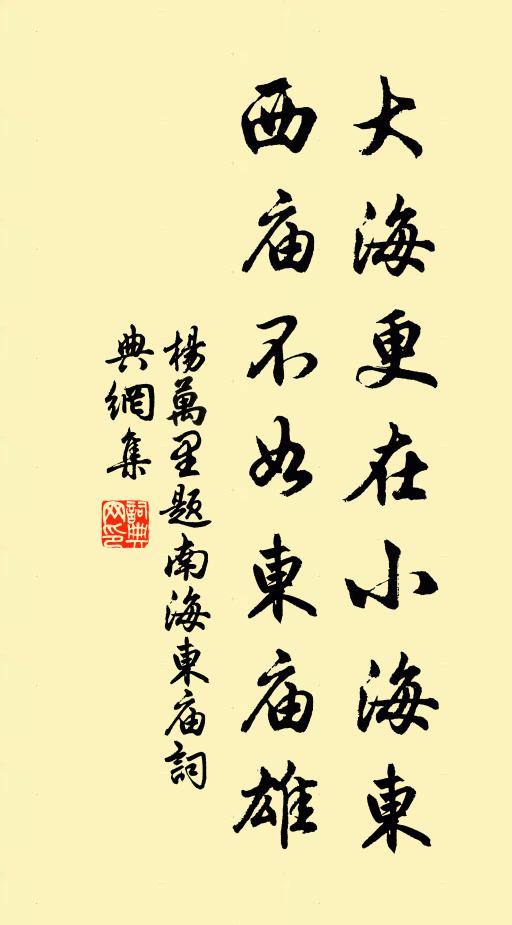 大海更在小海東
西庙不如東庙雄
楊萬里題南海東庙詞
典網集
詞典
网印